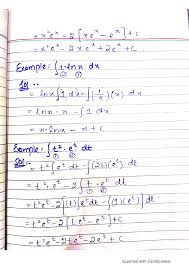 = x²eˣ - 2 [xeˣ - eˣ] + c
= x²eˣ - 2xeˣ + 2eˣ + c.
Example: ∫ 1·ln x dx
② ①
Sol:
= ln x ∫ 1 dx - ∫ (1/x) (x) dx
= ln x · x - ∫ 1 dx
= x ln x - x + c
Example: ∫ t² · eᵗ dt
① ②
Sol:
= t² ∫ eᵗ dt - ∫ (2t)(eᵗ) dt
= t² eᵗ - 2 ∫ t · eᵗ dt
① ②
= t² eᵗ - 2 [t ∫ eᵗ dt - ∫ (1)(eᵗ) dt]
= t² eᵗ - 2 [t eᵗ - eᵗ] + c
= t² eᵗ - 2t eᵗ - 2eᵗ + c
Scanned with CamScanner